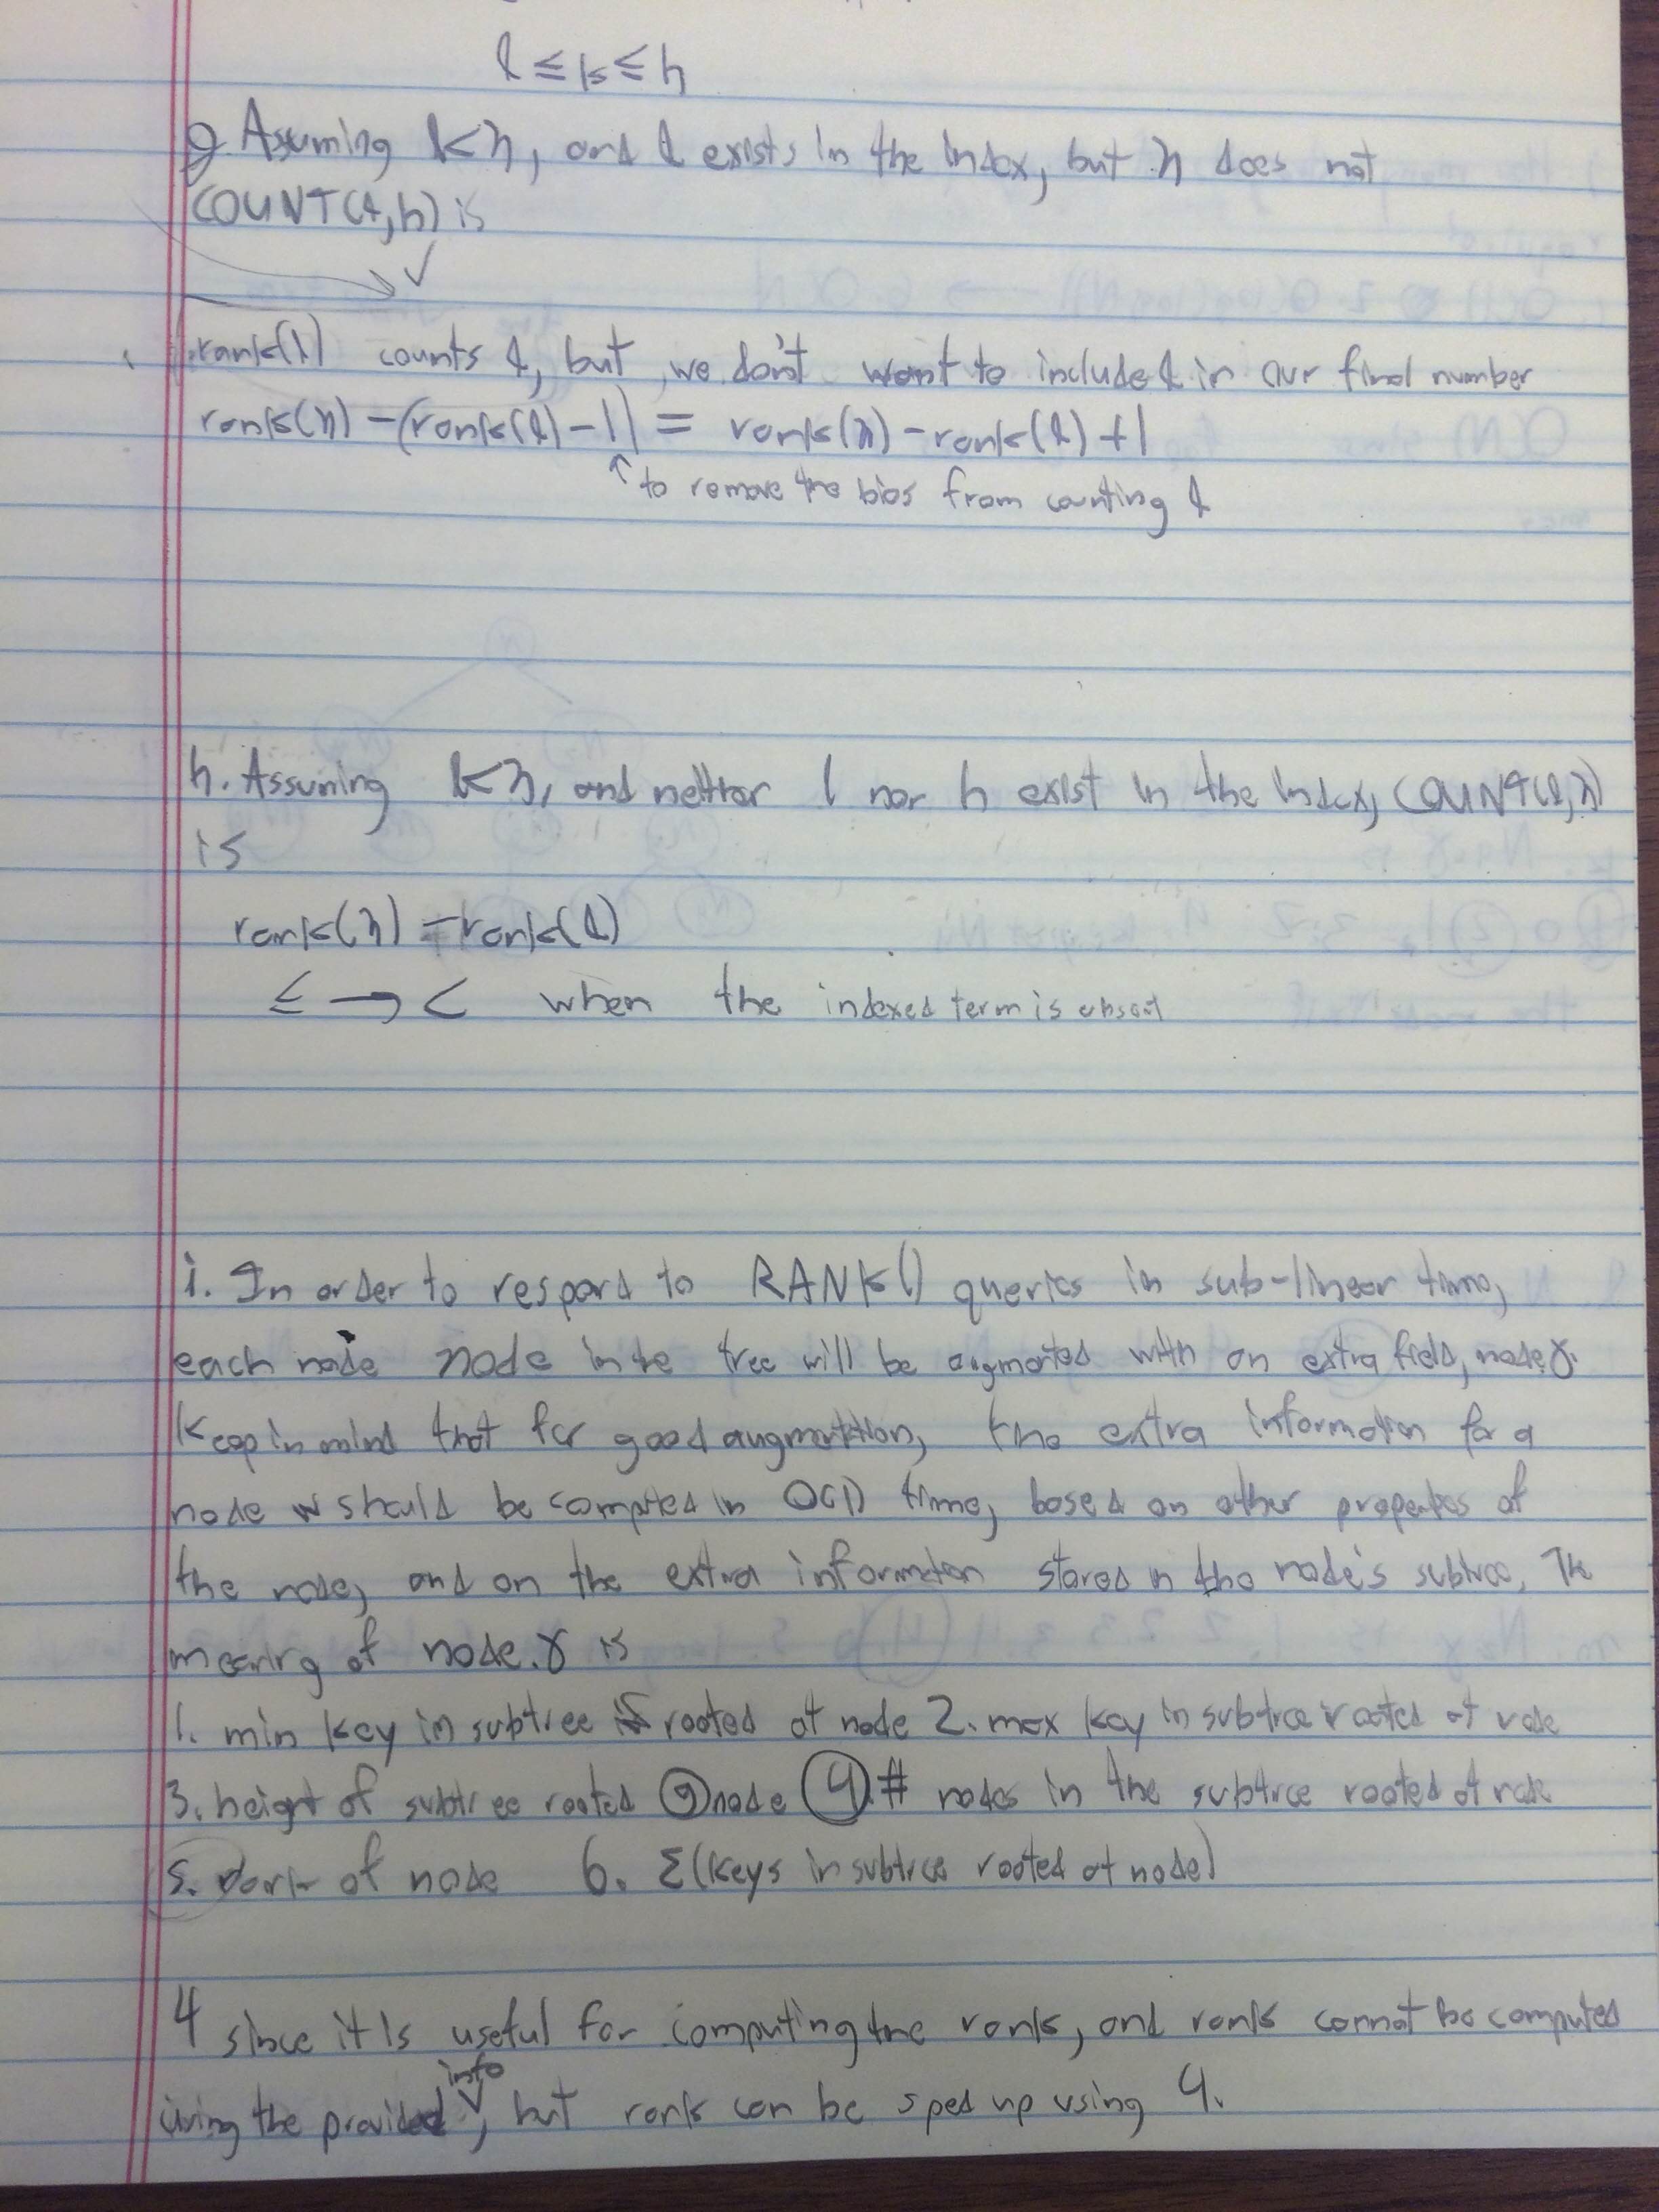 l ≤ k ≤ h
g. Assuming l<h, and l exists in the index, but h does not
COUNT(l,h) is
✓
rank(l) counts l, but we don't want to include l in our final number
rank(h) - (rank(l) - 1) = rank(h) - rank(l) + 1
↑ to remove the bias from counting l
h. Assuming l<h, and neither l nor h exist in the index, COUNT(l,h)
is
rank(h) - rank(l)
≤ → < when the indexed term is absent
i. In order to respond to RANK() queries in sub-linear time,
each node node in the tree will be augmented with an extra field, node.γ.
Keep in mind that for good augmentation, the extra information for a
node should be computed in O(1) time, based on other properties of
the node, and on the extra information stored in the node's subtree. The
meaning of node.γ is
1. min key in subtree rooted at node 2. max key in subtree rooted at node
3. height of subtree rooted @ node 4. # nodes in the subtree rooted at node
5. rank of node 6. Σ(keys in subtree rooted at node)
4 since it is useful for computing the rank, and rank cannot be computed
using the provided info, but rank can be sped up using 4.